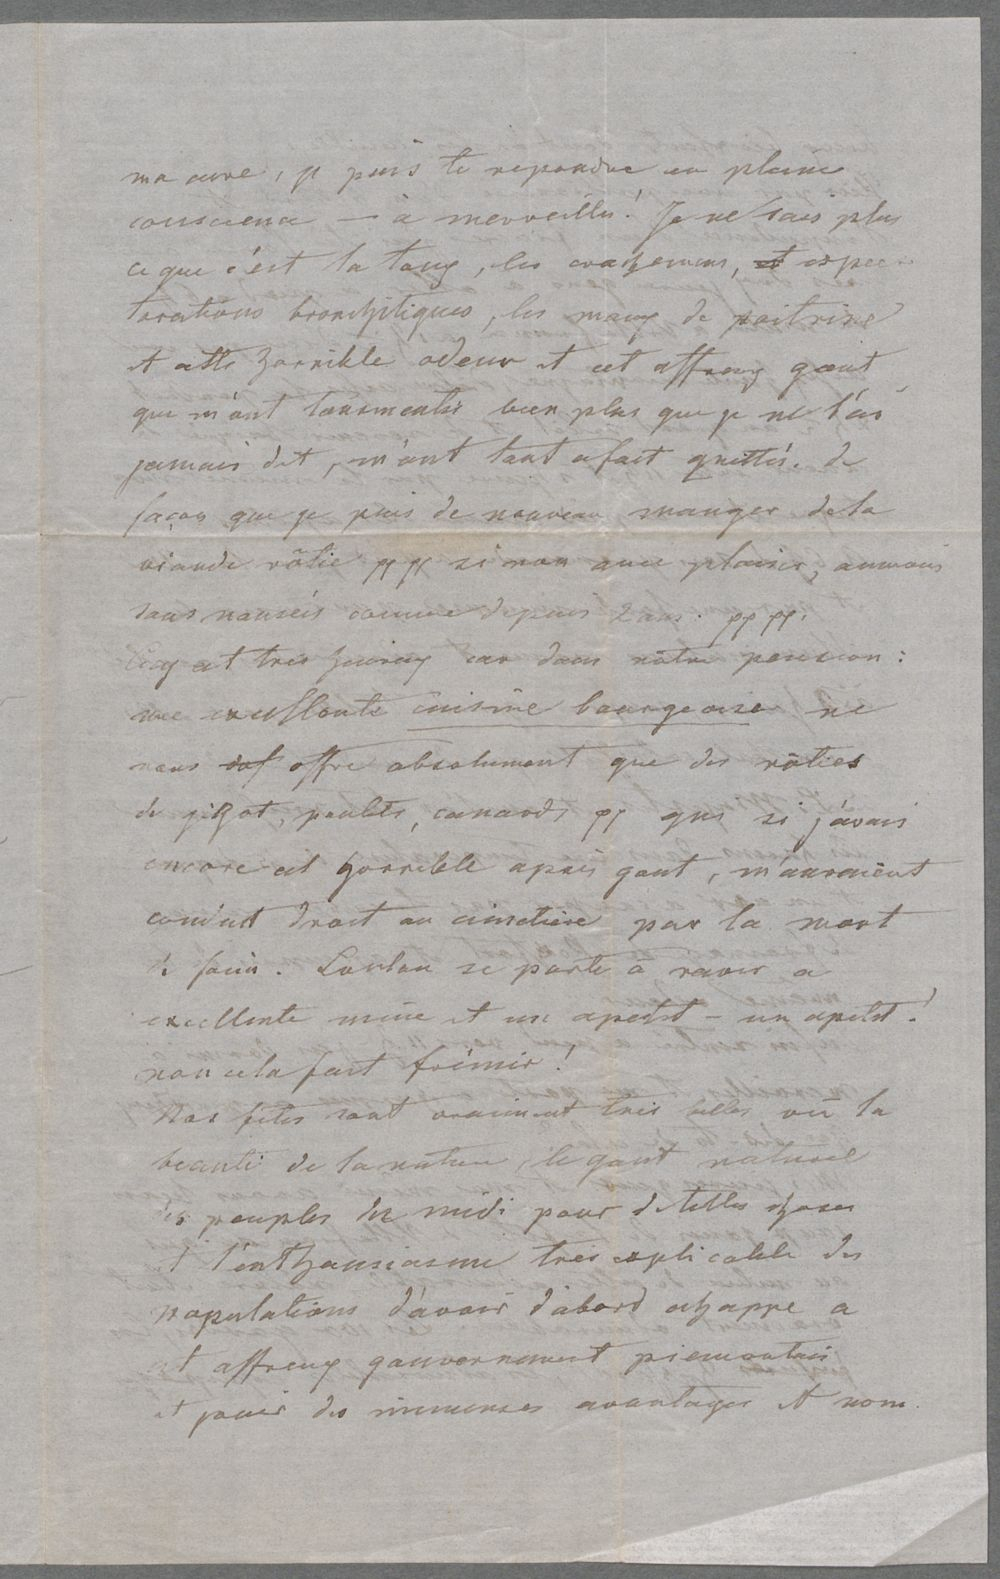 ma cure, je puis te repondre en pleine
conscience — à merveilles! Je ne sais plus
ce que c'est la toux, les crachemens, et expec
torations bronchitiques, les maux de poitrine
et cette horrible odeur et cet affreux gout
qui m'ont tourmentés bien plus que je ne t'ai
jamais dit, m'ont tout a fait quittés. de
façon que je puis de nouveau manger de la
viande rôtie pp pp si non avec plaisir, aumoins
sans nauseés comme depuis 2 ans. pp pp.
Ceçy est tres heureux car dans nôtre pension:
une excellente cuisine bourgeoise ne
nous offre absolument que des rôties
de gigot, poulets, canards pp qui si j'avais
encore cet horrible apres gout, m'auraient
conduit droit au cimetiere par la mort
de faim. Loulou se porte à ravir a
excellente mine et un apetit — un apetit!
non cela fait frémir!
Nos fêtes sont vraiment tres belles vû la
beauté de la nature, le gout naturel
des peuples du midi pour de telles choses
et l'enthousiasme très explicable des
populations d'avoir d'abord echappe a
cet affreux gouvernement piemontais
et jouir des immenses avantages et nom